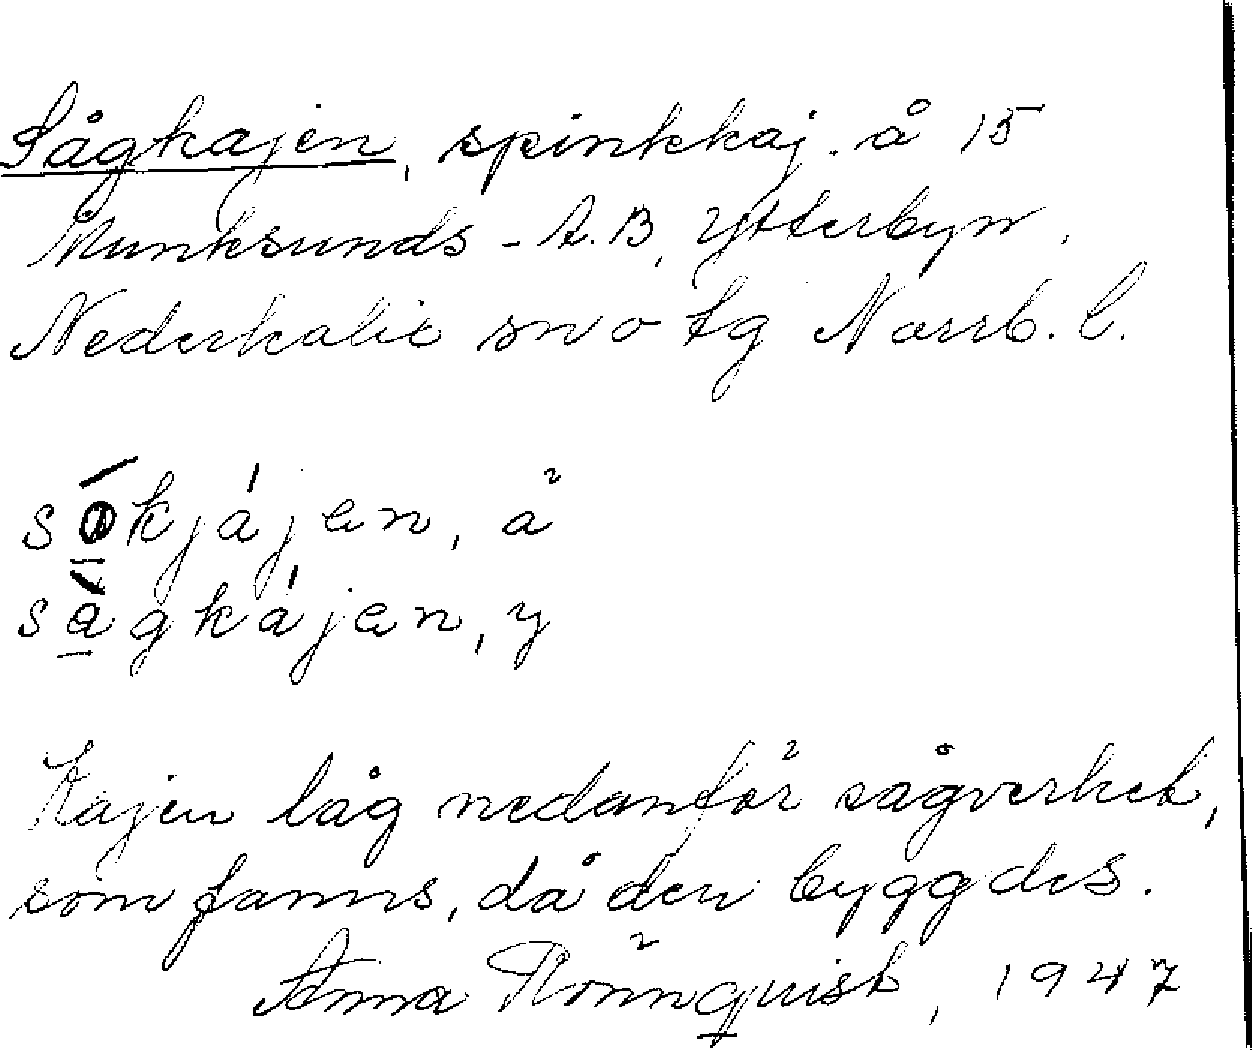 Sågkajen, spinkkaj. å 15
Munksunds - A.B, Ytterbyn,
Nederkalix sn o tg Norrb. l.
sókjájen, å
ságkájen, y
Kajen låg nedanför sågverket,
som fanns, då den byggdes.
Anna Rönnquist, 1947